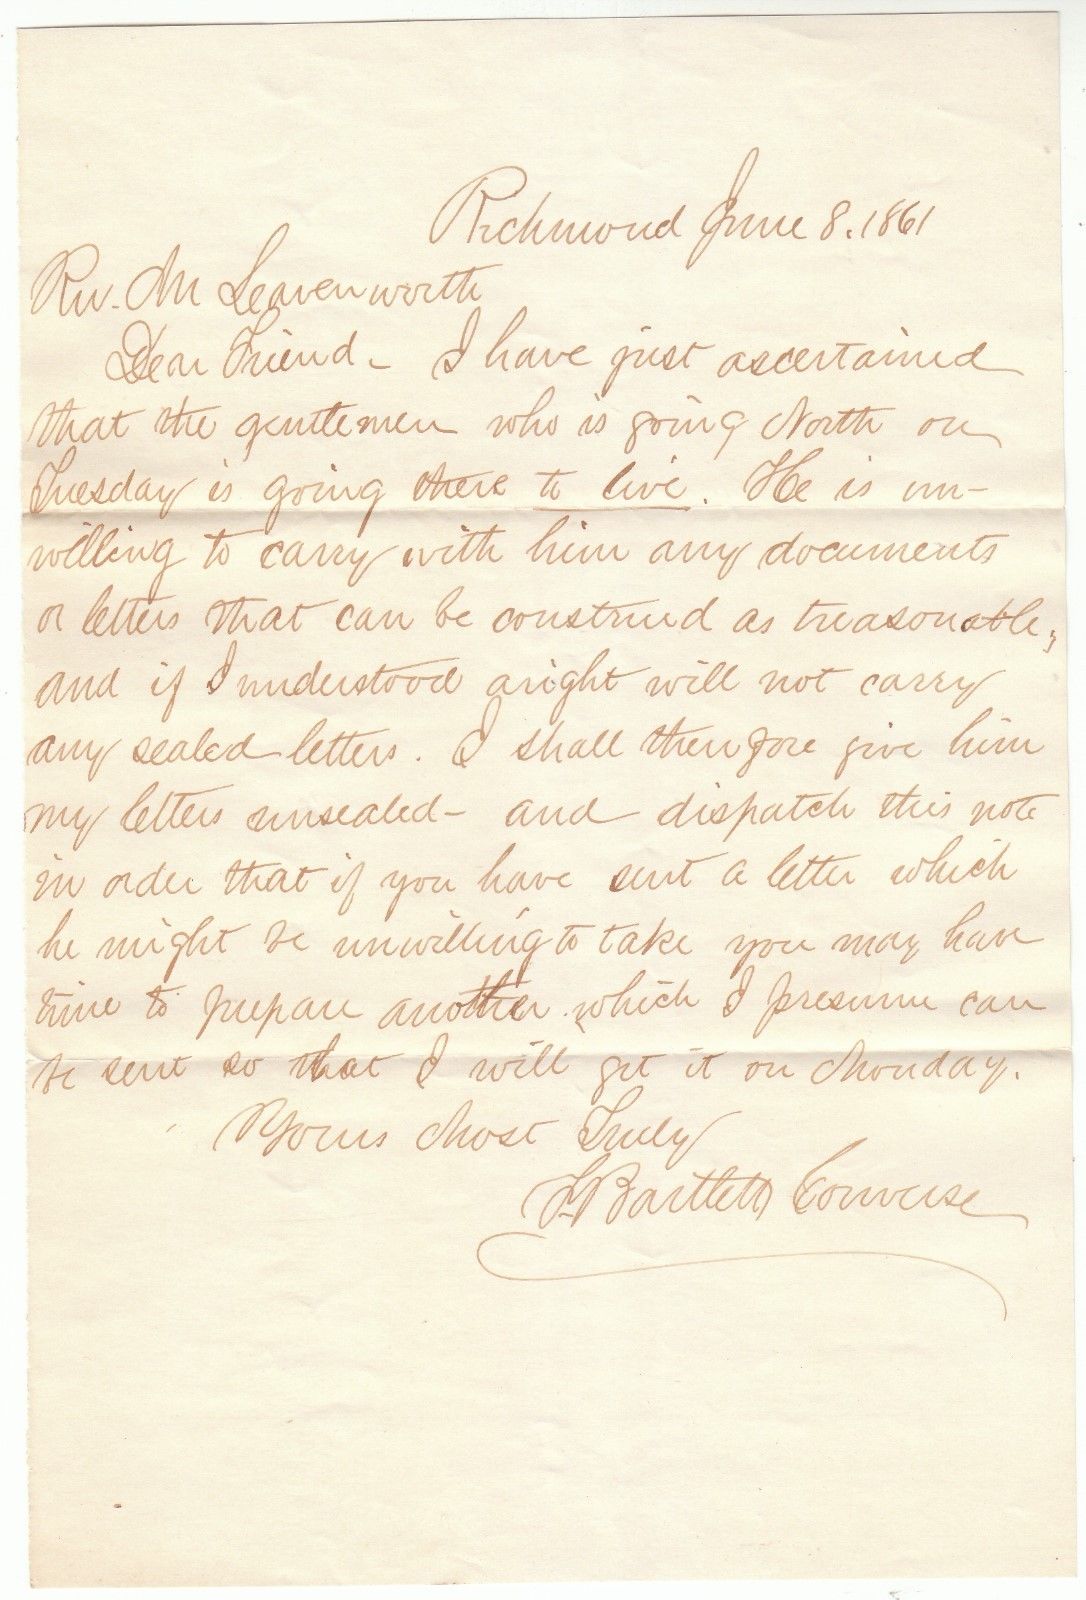 Richmond June 8. 1861
Rev. M Leavenworth
Dear Friend - I have just ascertained
that the gentlemen who is going North on
Tuesday is going there to live. He is un-
willing to carry with him any documents
or letters that can be construed as treasonable;
and if I understood aright will not carry
any sealed letters. I shall therefore give him
my letters unsealed - and dispatch this note
in order that if you have sent a letter which
he might be unwilling to take you may have
time to prepare another which I presume can
be sent so that I will get it on Monday.
Yours Most Truly
F. Bartlett Converse